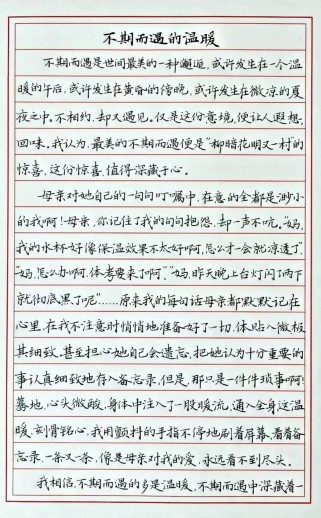 不期而遇的温暖
不期而遇是世间最美的一种邂逅,或许发生在一个温
暖的午后,或许发生在黄昏的傍晚,或许发生在微凉的夏
夜之中。不相约,却又遇见。仅是这份意境,便让人遐想、
回味。我认为,最美的不期而遇便是“柳暗花明又一村”的
惊喜,这份惊喜,值得深藏于心。
母亲对她自己的一句句叮嘱中,在意的全都是渺小
的我啊!母亲,你记住了我的句句抱怨,却一声不吭。“妈,
我的水杯好像保温效果不太好啊,怎么才一会就凉透了。”
“妈,怎么办啊,体考要来了啊”、“妈,昨天晚上台灯闪了两下
就彻底黑了呢”……原来我的每句话母亲都默默记在
心里,在我不注意时悄悄地准备好了一切,体贴入微极
其细致,甚至担心她自己会遗忘,把她认为十分重要的
事认真细致地存入备忘录,但是,那只是一件件琐事啊!
蓦地,心头微酸,身体中注入了一股暖流,通入全身这温
暖,刻骨铭心,我用颤抖的手指不停地刷着屏幕,看着备
忘录,一条又一条,像是母亲对我的爱,永远看不到尽头。
我相信,不期而遇的多是温暖,不期而遇中深藏着一